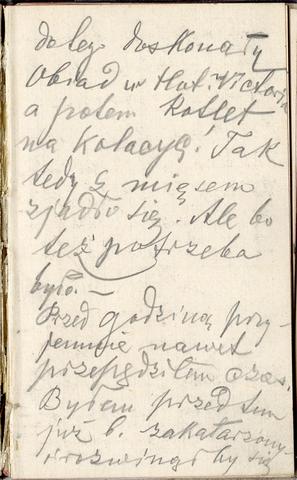 do lego doskonały
Obiad w Hot. Victoria
a potem kotlet
na kolacyę! Tak
tedy z mięsem
zjadło się. Ale bo
też potrzeba
było. —
Przed godziną przy-
jemnie nawet
przepędziłem czas.
Byłem przed tem
już b. zakatarzony
by się